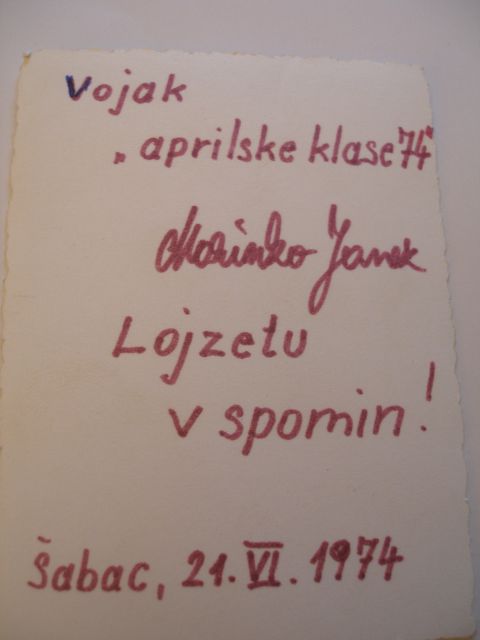 Vojak
„aprilske klase 74"
Marinko Janek
Lojzetu
v spomin!
Šabac, 21. VI. 1974